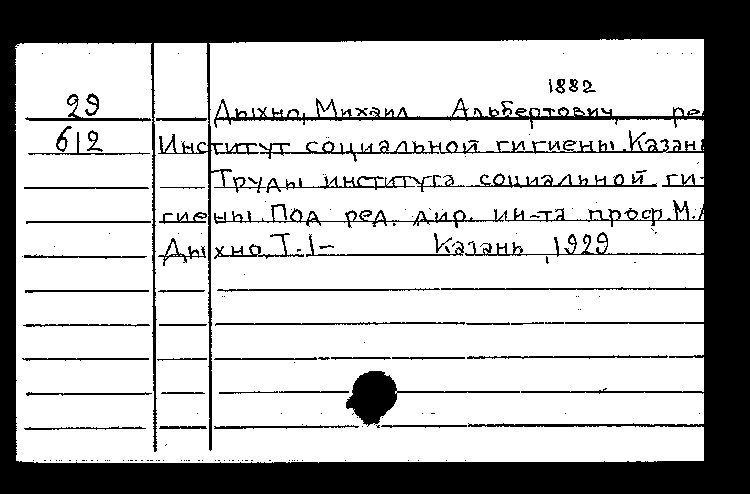 1882
29 Дыхно, Михаил Альбертович, ре
612 Институт социальной гигиены. Казань
Труды института социальной ги-
гиены. Под ред. дир. ин-та проф. М.А
Дыхно. Т. I- Казань, 1929